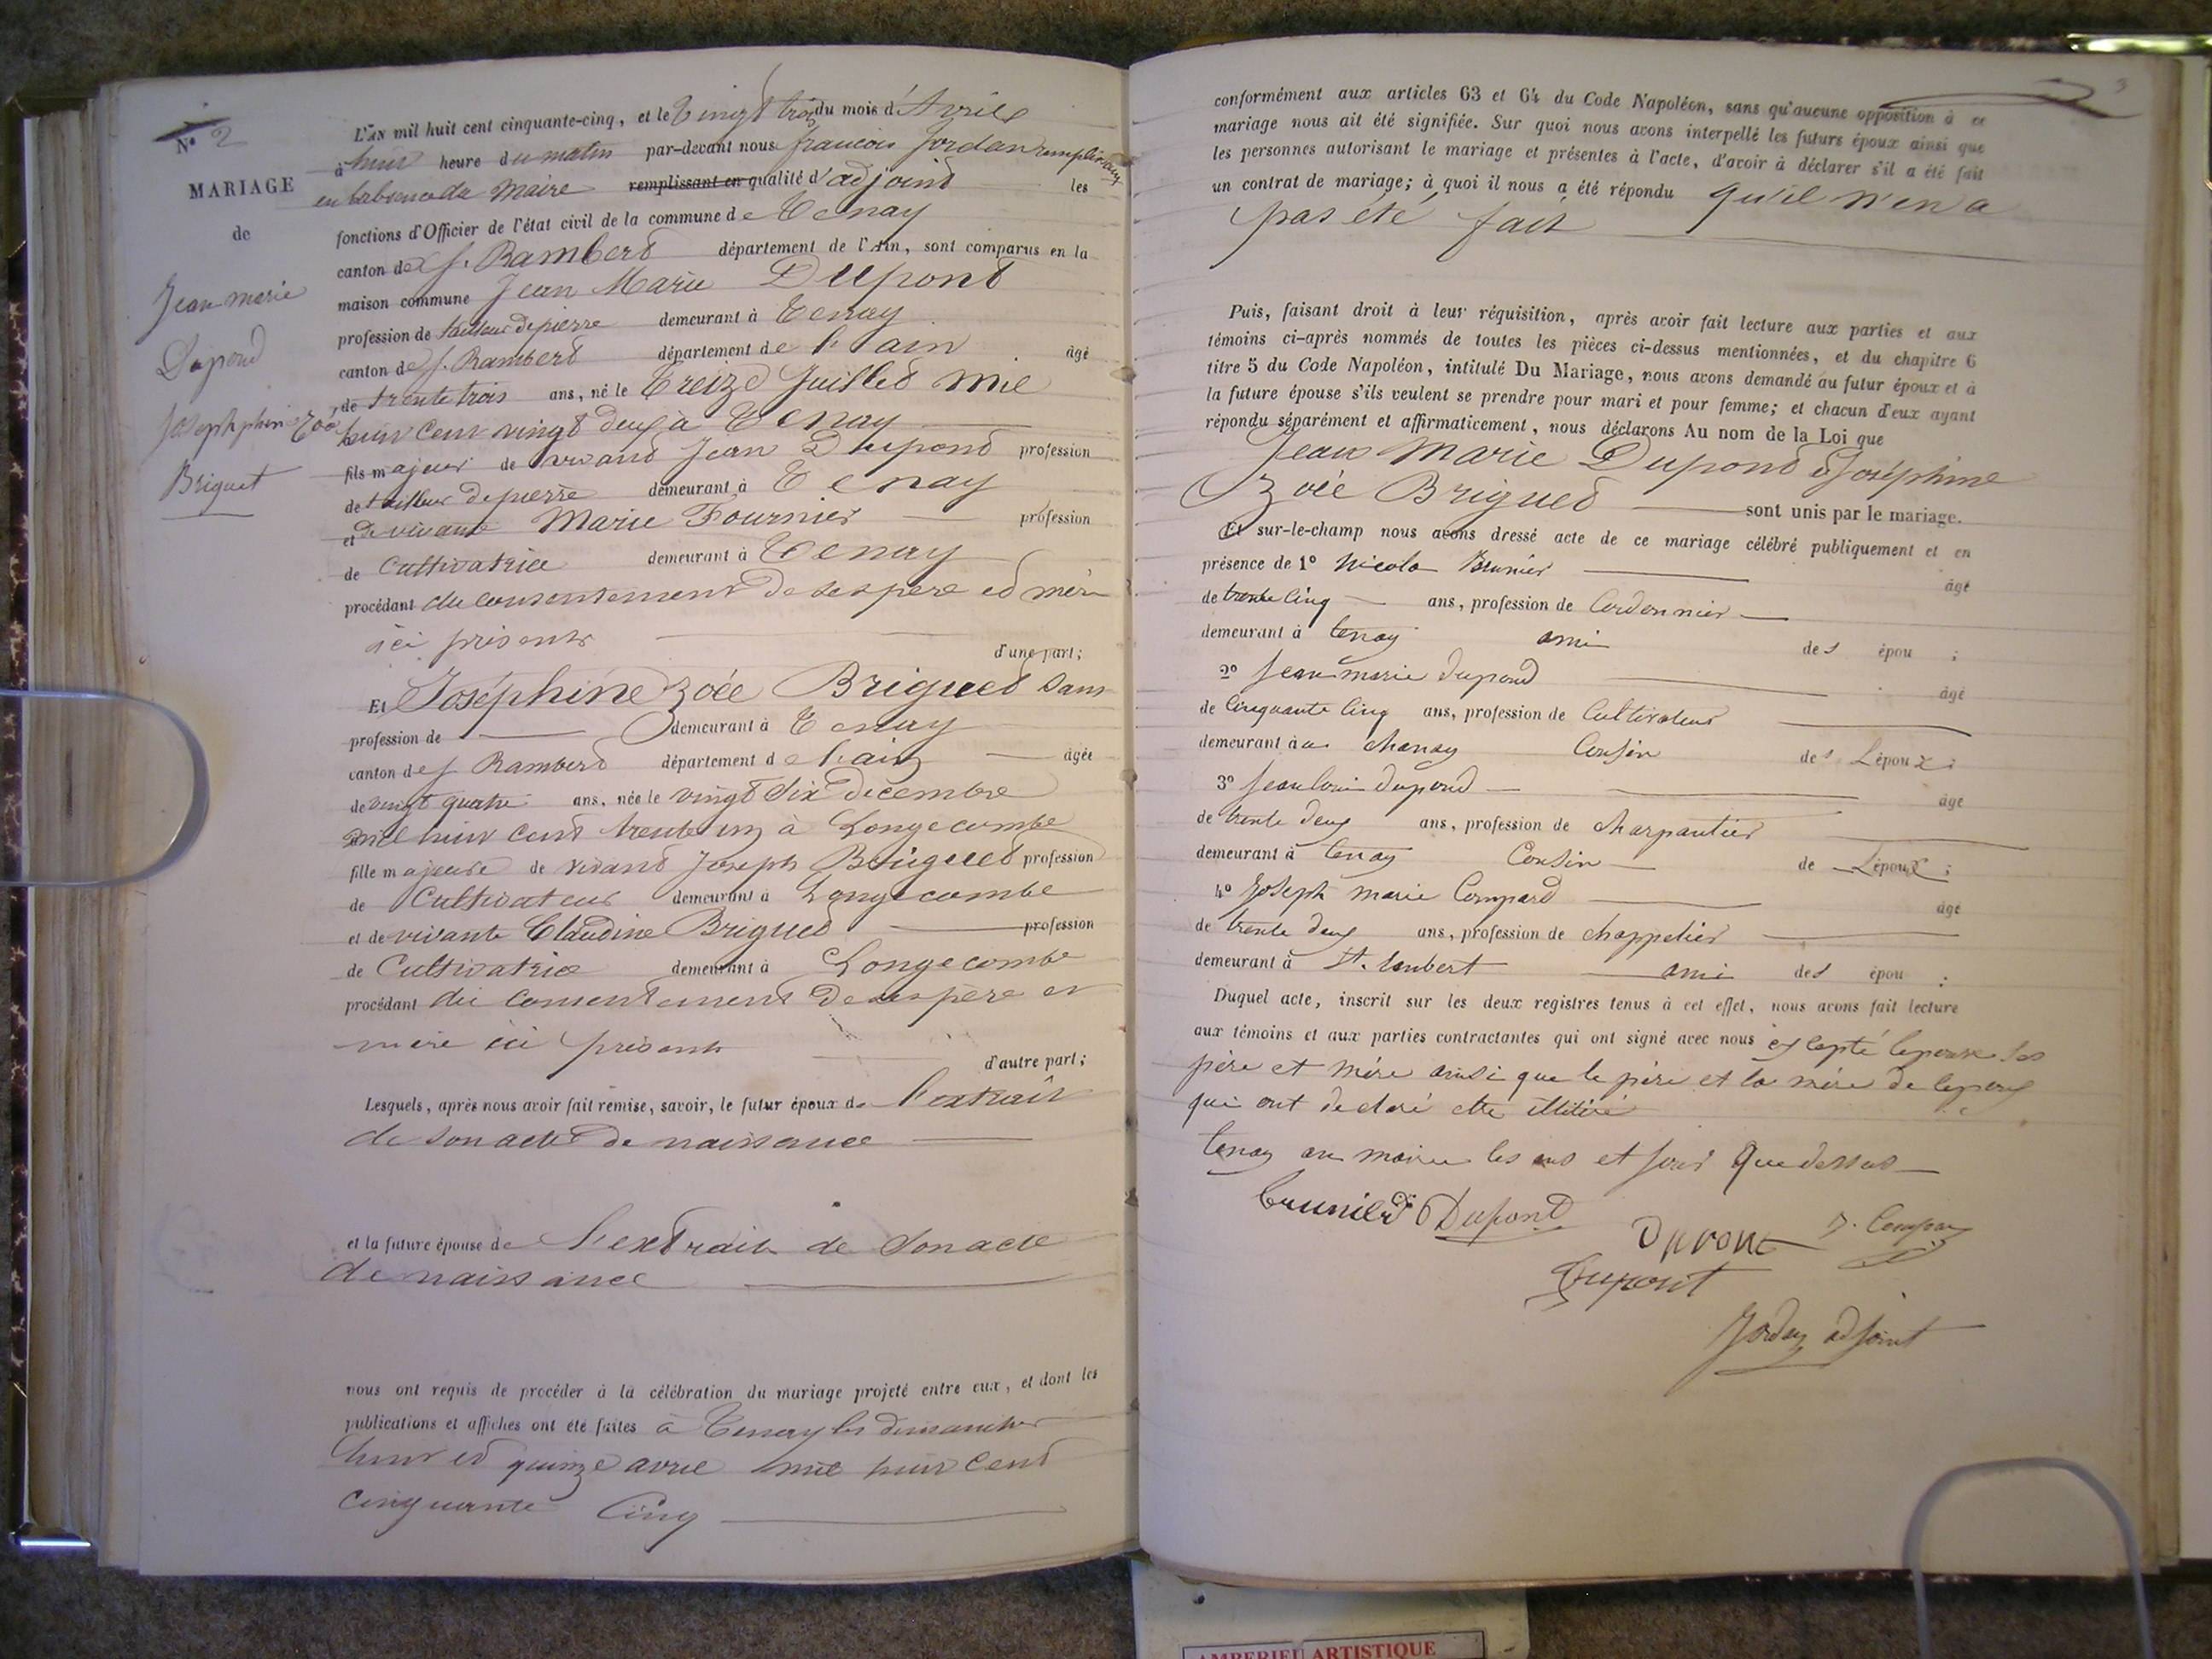 N° 2
MARIAGE
de
Jean marie
Dupond
Josephphine Zoé
Briguet
L'AN mil huit cent cinquante-cinq, et le Vingt trois du mois d'Avril
à huit heure du matin par-devant nous francois Jordan remplissant
en labsence du Maire remplissant en qualité d'adjoint les
fonctions d'Officier de l'état civil de la commune de Tenay
canton de St. Rambert département de l'Ain, sont comparus en la
maison commune Jean Marie Dupont
profession de tailleur de pierre demeurant à Tenay
canton de St. Rambert département de l'ain âgé
de trente trois ans, né le Treize Juillet mil
huit cent vingt deux à Tenay
fils majeur de vivant Jean Dupont profession
de tailleur de pierre demeurant à Tenay
et de vivante Marie Fournier profession
de Cultivatrice demeurant à Tenay
procédant du consentement de ses père et mère
ici présents d'une part;
Et Joséphine Zoée Briguet Sans
profession de demeurant à Tenay
canton de St Rambert département de l'ain âgée
de vingt quatre ans, née le vingt Six décembre
mil huit cent trente un à Longecombe
fille majeure de vivant Joseph Briguet profession
de Cultivateur demeurant à Longecombe
et de vivante Claudine Briguet profession
de Cultivatrice demeurant à Longecombe
procédant du consentement de ses père et
mère ici présents d'autre part;
Lesquels, après nous avoir fait remise, savoir, le futur époux de l'extrait
de son acte de naissance
et la future épouse de l'extrait de Son acte
de naissance
nous ont requis de procéder à la célébration du mariage projeté entre eux, et dont les
publications et affiches ont été faites à Tenay les dimanches
huit et quinze avril mil huit cent
cinquante Cinq
conformément aux articles 63 et 64 du Code Napoléon, sans qu'aucune opposition à ce
mariage nous ait été signifiée. Sur quoi nous avons interpellé les futurs époux ainsi que
les personnes autorisant le mariage et présentes à l'acte, d'avoir à déclarer s'il a été fait
un contrat de mariage; à quoi il nous a été répondu qu'il n'en a
pas été fait
Puis, faisant droit à leur réquisition, après avoir fait lecture aux parties et aux
témoins ci-après nommés de toutes les pièces ci-dessus mentionnées, et du chapitre 6
titre 5 du Code Napoléon, intitulé Du Mariage, nous avons demandé au futur époux et à
la future épouse s'ils veulent se prendre pour mari et pour femme; et chacun d'eux ayant
répondu séparément et affirmativement, nous déclarons Au nom de la Loi que
Jean Marie Dupond et Joséphine
Zoée Briguet sont unis par le mariage.
Et sur-le-champ nous avons dressé acte de ce mariage célébré publiquement et en
présence de 1° Nicola Brunier âgé
de trente cinq ans, profession de Cordonnier
demeurant à tenay ami des épou ;
2° Jean marie dupond âgé
de Cinquante Cinq ans, profession de Cultivateur
demeurant à chanay Cousin de Lépoux;
3° Jean louis dupond âgé
de trente deux ans, profession de charpantier
demeurant à tenay Cousin de Lépoux;
4° Joseph marie Compard âgé
de trente deux ans, profession de chappelier
demeurant à St. rambert ami des épou ;
Duquel acte, inscrit sur les deux registres tenus à cet effet, nous avons fait lecture
aux témoins et aux parties contractantes qui ont signé avec nous excepté lepouse ses
père et mère ainsi que le père et la mère de lepoux
qui ont declaré etre illitiré
tenay en mairie les ans et jour que dessus
brunier Dupont
Dupont J. Compar
Dupont
Jordan adjoint
AMBERIEU ARTISTIQUE